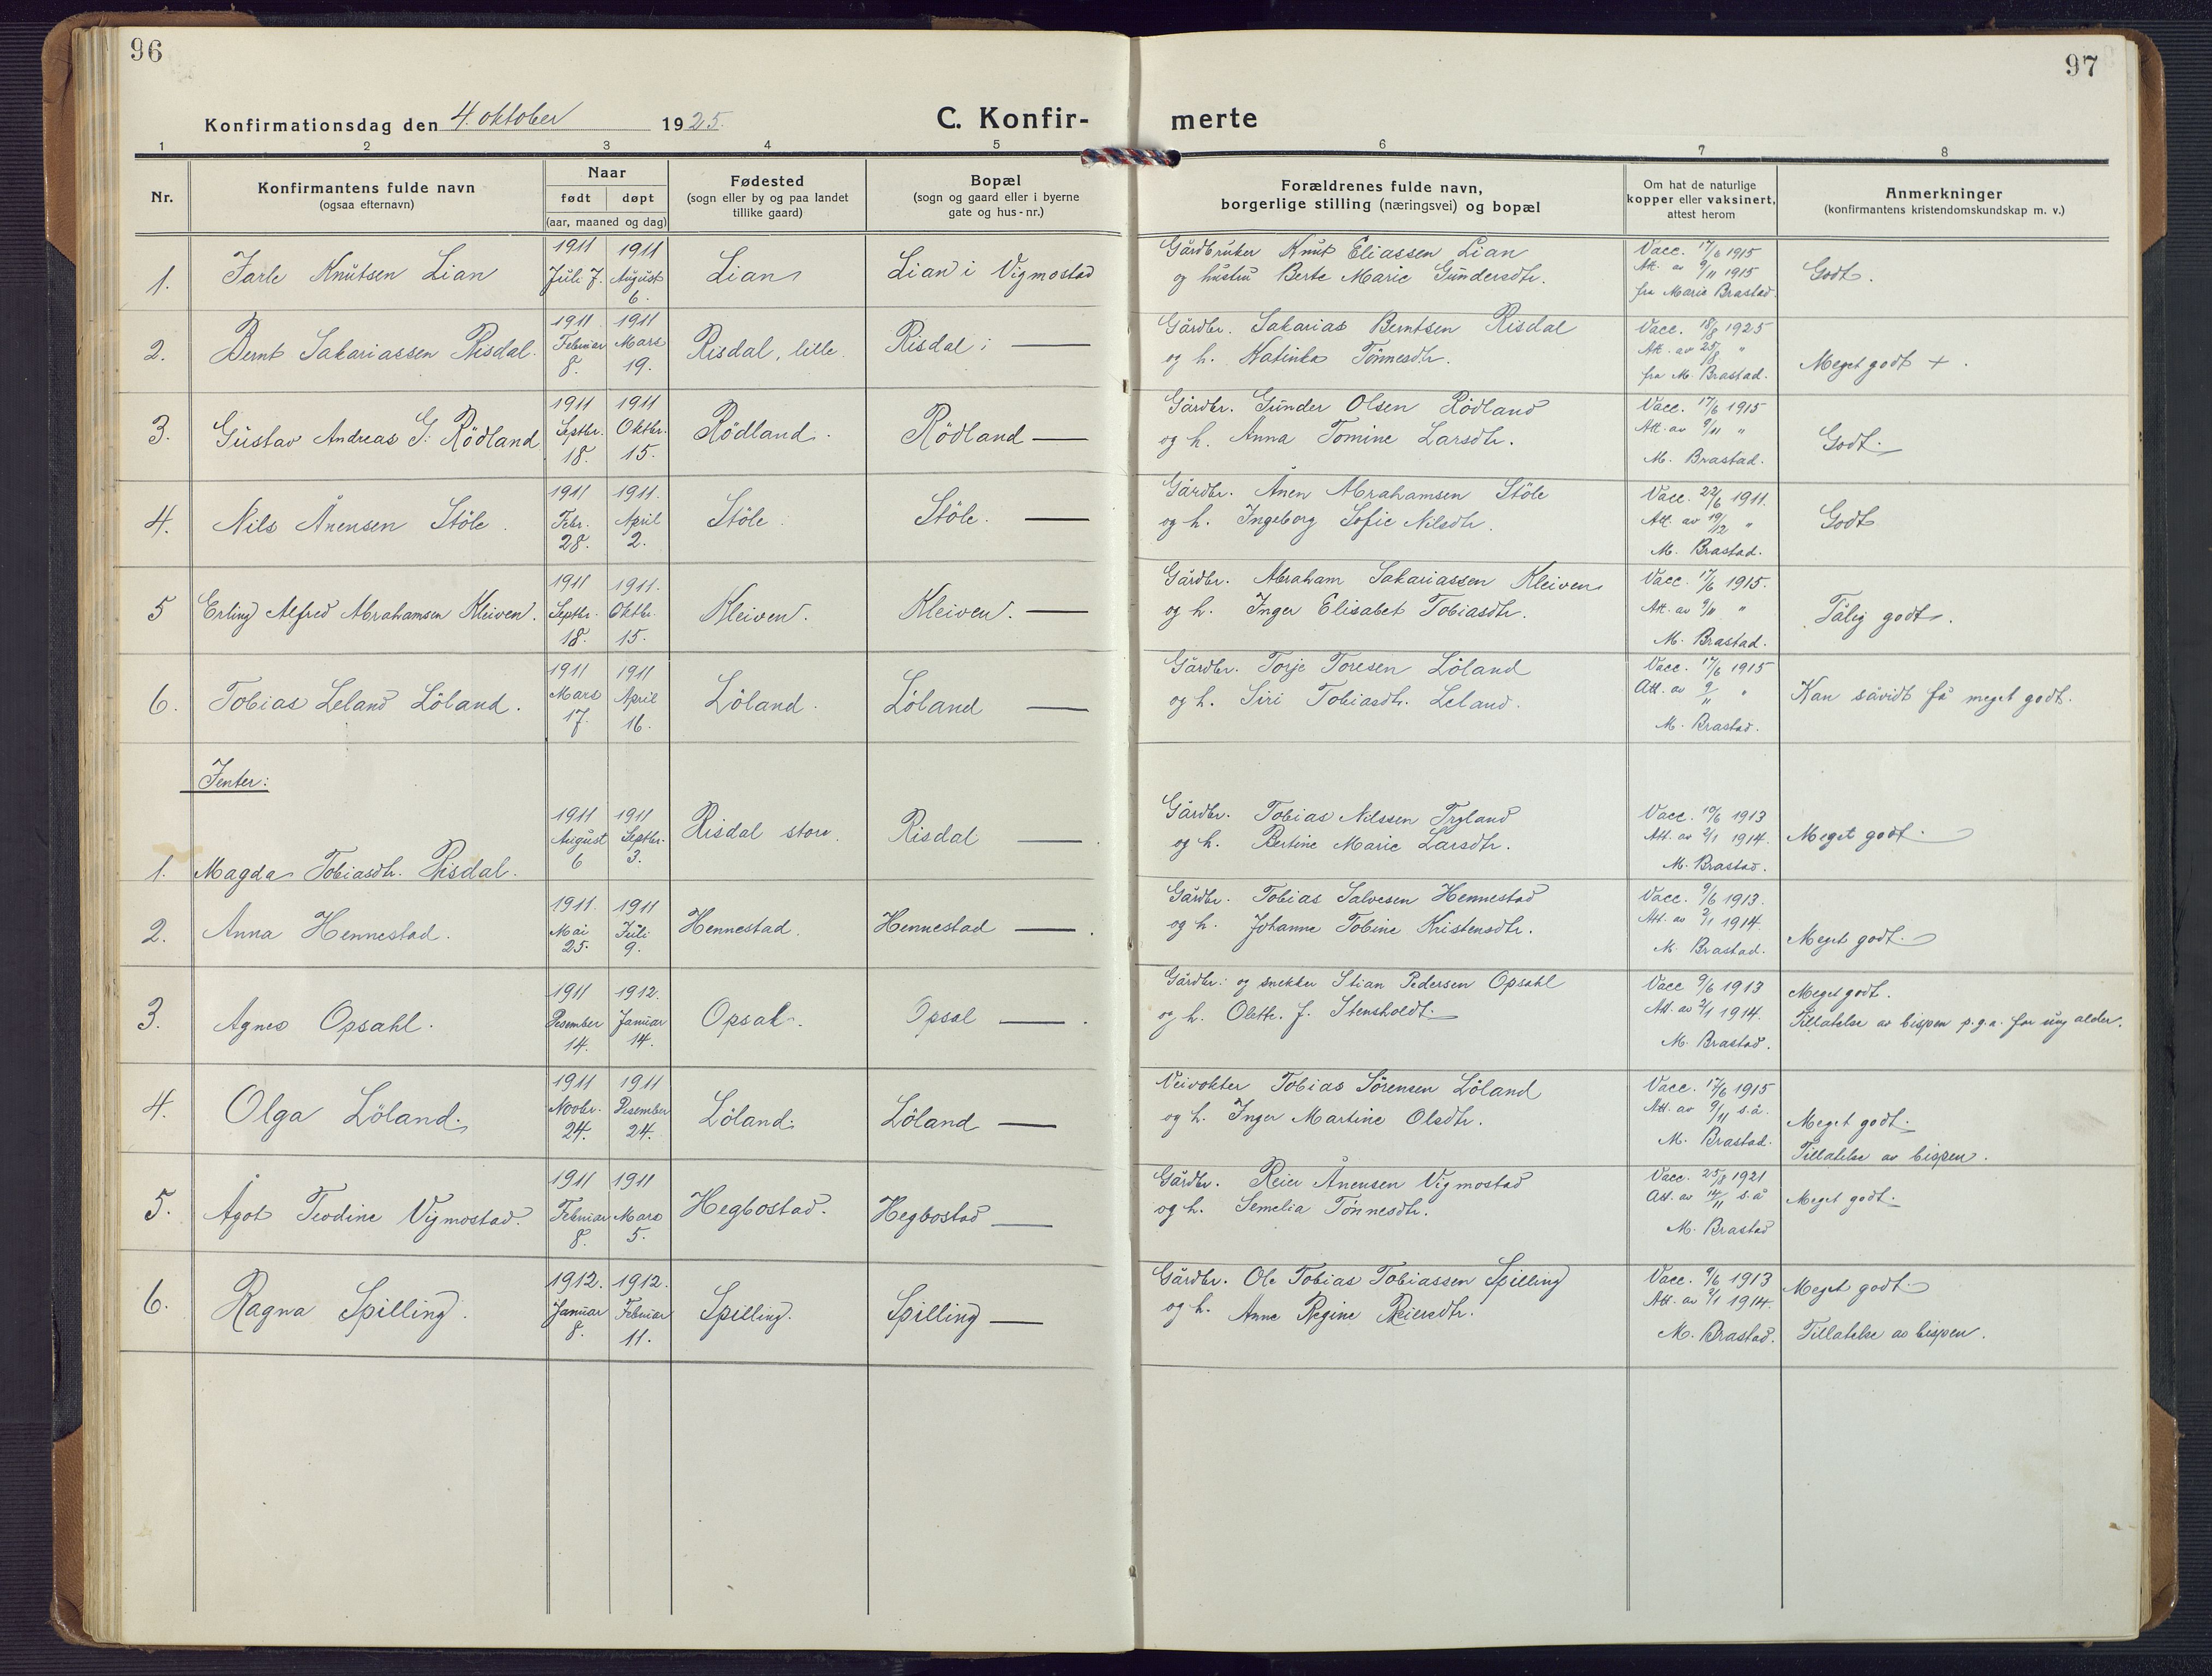 96
97
Konfirmationsdag den 4. oktober 1925.
C. Konfir-
merte
1 2 3 4 5 6 7 8
Nr.
Konfirmantens fulde navn
(ogsaa efternavn)
Naar
født døpt
(aar, maaned og dag)
Fødested
(sogn eller by og paa landet
tillike gaard)
Bopæl
(sogn og gaard eller i byerne
gate og hus-nr.)
Forældrenes fulde navn,
borgerlige stilling (næringsvei) og bopæl
Om hat de naturlige
kopper eller vaksinert,
attest herom
Anmerkninger
(konfirmantens kristendomskundskap m. v.)
1. Jarle Knutsen Lian
1911 Juli 7.
1911 August 6.
Lian
Lian i Vigmostad
Gårdbruker Knut Eliassen Lian
og hustru Berte Marie Gundersdtr.
Vacc. 17/6 1915
Att. av 9/11 1915
fra Marie Brastad.
Godt.
2. Bernt Sakariassen Risdal.
1911. Februar 8.
1911 Mars 19.
Risdal, lille.
Risdal i —
Gårdbr. Sakarias Berntsen Risdal
og h. Katinka Tönnesdtr.
Vacc. 18/8 1925
Att. av 25/8 "
fra M. Brastad.
Meget godt + .
3. Gustav Andreas G. Rödland
1911 Septbr. 18.
1911 Oktbr. 15.
Rödland.
Rödland —
Gårdbr. Gunder Olsen Rödland
og h. Anna Tomine Larsdtr.
Vacc. 17/6 1915
Att. av 9/11 "
M. Brastad.
Godt.
4. Nils Ånensen Stöle.
1911 Febr. 28.
1911. April 2.
Stöle
Stöle. —
Gårdbr. Ånen Abrahamsen Stöle
og h. Ingeborg Sofie Nilsdtr.
Vacc. 22/6 1911.
Att. av 19/12 "
M. Brastad.
Godt
5 Erling Alfred Abrahamsen Kleiven.
1911 Septbr. 18.
1911. Oktbr. 15.
Kleiven.
Kleiven. —
Gårdbr. Abraham Sakariassen Kleiven
og h. Inger Elisabet Tobiasdtr.
Vacc. 17/6 1915.
Att. av 9/11 "
M. Brastad.
Tålig godt.
6. Tobias Leland Löland.
1911 Mars 17.
1911 April 16.
Löland.
Löland —
Gårdbr. Torje Toresen Löland
og h. Siri Tobiasdtr. Leland.
Vacc. 17/6 1915
Att. av 9/11 "
M. Brastad.
Kan såvidt få meget godt.
Jenter:
1. Magda Tobiasdtr. Risdal.
1911 August 6
1911 Septbr. 3.
Risdal store.
Risdal —
Gårdbr. Tobias Nilssen Tryland
og h. Bertine Marie Larsdtr.
Vacc. 10/6 1913
Att. av 2/1 1914.
M. Brastad.
Meget godt.
2. Anna Hennestad.
1911. Mai 25.
1911 Juli 9.
Hennestad.
Hennestad —
Gårdbr. Tobias Salvesen Hennestad
og h. Johanne Tobine Kristensdtr.
Vacc. 9/6 1913.
Att. av 2/1 1914.
M. Brastad.
Meget godt.
3. Agnes Opsahl.
1911 Desember 14.
1912. Januar 14.
Opsal.
Opsal —
Gårdbr. og snekker Stian Pedersen Opsahl
og h. Olette J. Stensholdt.
Vacc 9/6 1913
Att. av 2/1 1914.
M. Brastad.
Meget godt.
Tillatelse av bispen p.g.a. for ung alder.
4. Olga Löland.
1911 Novbr. 24.
1911 Desember 24.
Löland.
Löland —
Veivokter Tobias Sörensen Löland
og h. Inger Martine Olsdtr.
Vacc. 17/6 1915
Att. av 9/11 s.å.
M. Brastad.
Meget godt.
Tillatelse av bispen.
5. Ågot Teodine Vigmostad.
1911 Februar 8.
1911 Mars 5.
Hegbostad.
Hegbostad —
Gårdbr. Reier Ånensen Vigmostad
og h. Semelia Tönnesdtr.
Vacc. 25/8 1921
Att. av 14/11 s.å
M. Brastad
Meget godt.
6. Ragna Spilling.
1912. Januar 8.
1912. Februar 11.
Spilling.
Spilling —
Gårdbr. Ole Tobias Tobiassen Spilling
og h. Anne Regine Reiersdtr.
Vacc. 9/6 1913
Att. av 2/1 1914.
M. Brastad.
Meget godt
Tillatelse av bispen.